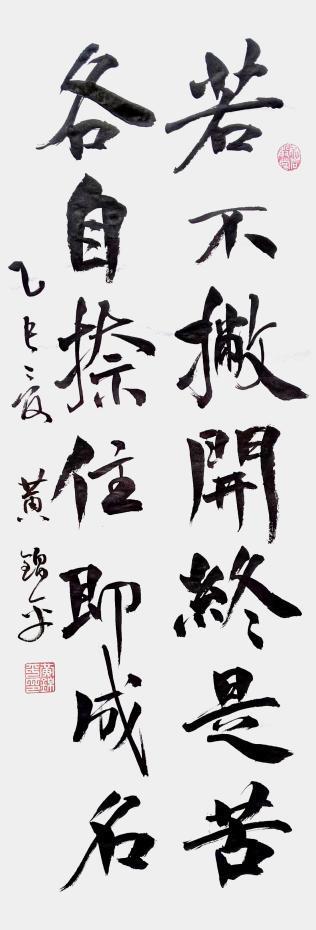 若不撇開終是苦
各自捺住即成名
乙巳之夏 黄錦平